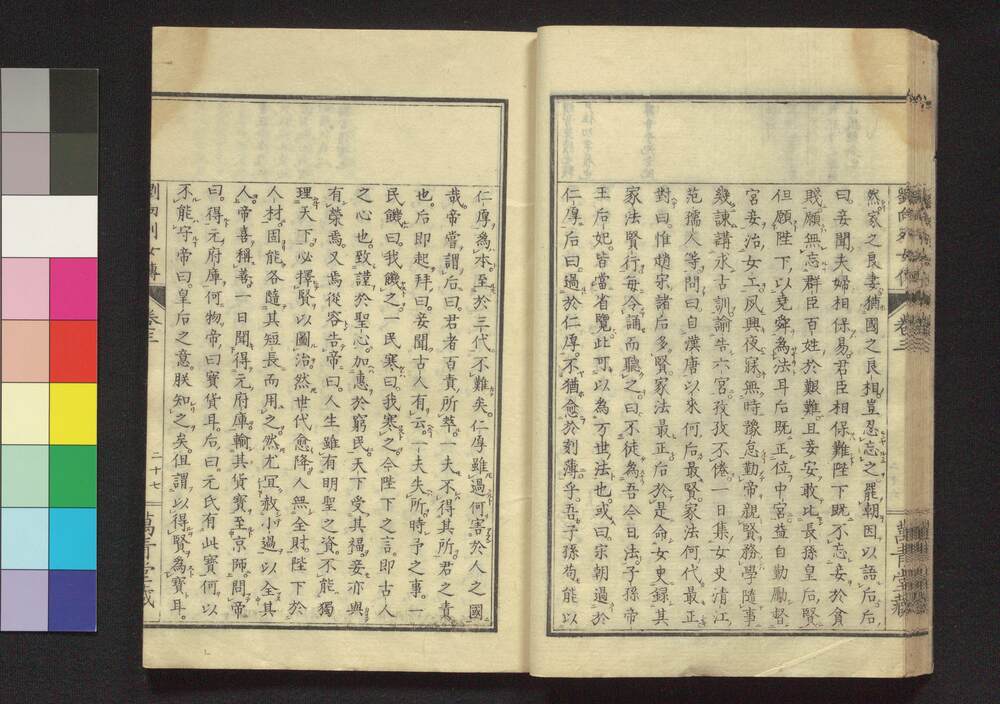 劉向列女傳
卷三
萬青堂藏
然家之良妻猶國之良相豈忍忘之罷朝因以語后后
曰妾聞夫婦相保易君臣相保難陛下既不忘妾於貧
賤願無忘群臣百姓於艱難且妾安敢比長孫皇后賢
但願陛下以堯舜為法耳后既正位中宮益自勤勵督
宮妾治女工夙興夜寐無時豫怠勤帝親賢務學隨事
幾諫講求古訓諭告六宮孜孜不倦一日集女史清江
范孺人等問曰自漢唐以來何后最賢家法何代最正
對曰惟趙宋諸后多賢家法最正后於是命女史錄其
家法賢行每令誦而聽之曰不徒為吾今日法子孫帝
王后妃皆當省覽此可以為万世法也或曰宋朝過於
仁厚后曰過於仁厚不猶愈於刻薄乎吾子孫苟能以
仁厚為本至於三代不難矣仁厚雖過何害於人之國
哉帝嘗謂后曰君者百責所萃一夫不得其所君之責
也后即起拜曰妾聞古人有云一夫失所時予之事一
民饑曰我饑之一民寒曰我寒之今陛下之言即古人
之心也致謹於聖心加惠於窮民天下受其福妾亦與
有榮焉又焉從容告帝曰人生雖有明聖之資不能獨
理天下必擇賢以圖治然世代愈降人無全財陛下於
人材固能各隨其短長而用之然尤宜赦小過以全其
人帝喜稱善一日聞得元府庫輸其貨寶至京師問帝
曰得元府庫何物帝曰寶貨耳后曰元氏有此寶何以
不能守帝曰皇后之意朕知之矣但謂以得賢為寶耳
劉向列女傳
卷三
二十七
萬青堂藏